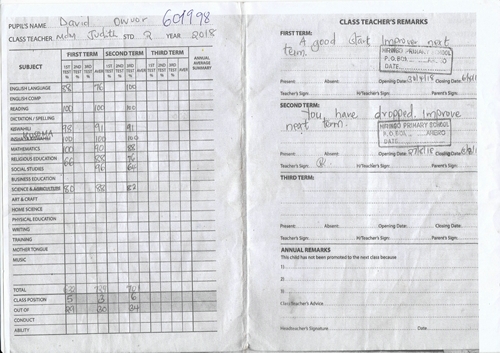 PUPIL'S NAME David Owuor 601998
CLASS TEACHER Mdm Judith STD 2 YEAR 2018
SUBJECT FIRST TERM SECOND TERM THIRD TERM ANNUAL AVERAGE SUMMARY
1ST TEST % 2ND TEST % 3RD TEST % AVER 1ST TEST % 2ND TEST % 3RD TEST % AVER 1ST TEST % 2ND TEST % 3RD TEST % AVER
ENGLISH LANGUAGE 88 76 100
ENGLISH COMP
READING 100 100 100
DICTATION / SPELLING
KISWAHILI 98 91 91
KUSOMA 100 100 100
MATHEMATICS 100 90 88
RELIGIOUS EDUCATION 66 88 76
SOCIAL STUDIES 96 64
BUSINESS EDUCATION
SCIENCE & AGRICULTURE 80 88 82
ART & CRAFT
HOME SCIENCE
PHYSICAL EDUCATION
WRITING
TRAINING
MOTHER TONGUE
MUSIC
TOTAL 632 729 701
CLASS POSITION 5 3 6
OUT OF 29 30 34
CONDUCT
ABILITY
CLASS TEACHER'S REMARKS
FIRST TERM:
A good start Improve next
term.
PRIMARY SCHOOL
P.O.BOX
DATE
Present: Absent: Opening Date: Closing Date:
Teacher's Sign: H/Teacher's Sign: Parent's Sign:
SECOND TERM:
You have dropped. Improve
next term.
PRIMARY SCHOOL
P.O.BOX
DATE
Present: Absent: Opening Date: Closing Date:
Teacher's Sign: H/Teacher's Sign: Parent's Sign:
THIRD TERM:
Present: Absent: Opening Date: Closing Date:
Teacher's Sign: H/Teacher's Sign: Parent's Sign:
ANNUAL REMARKS
This child has not been promoted to the next class because
Class Teacher's Advice
Headteacher's Signature Date